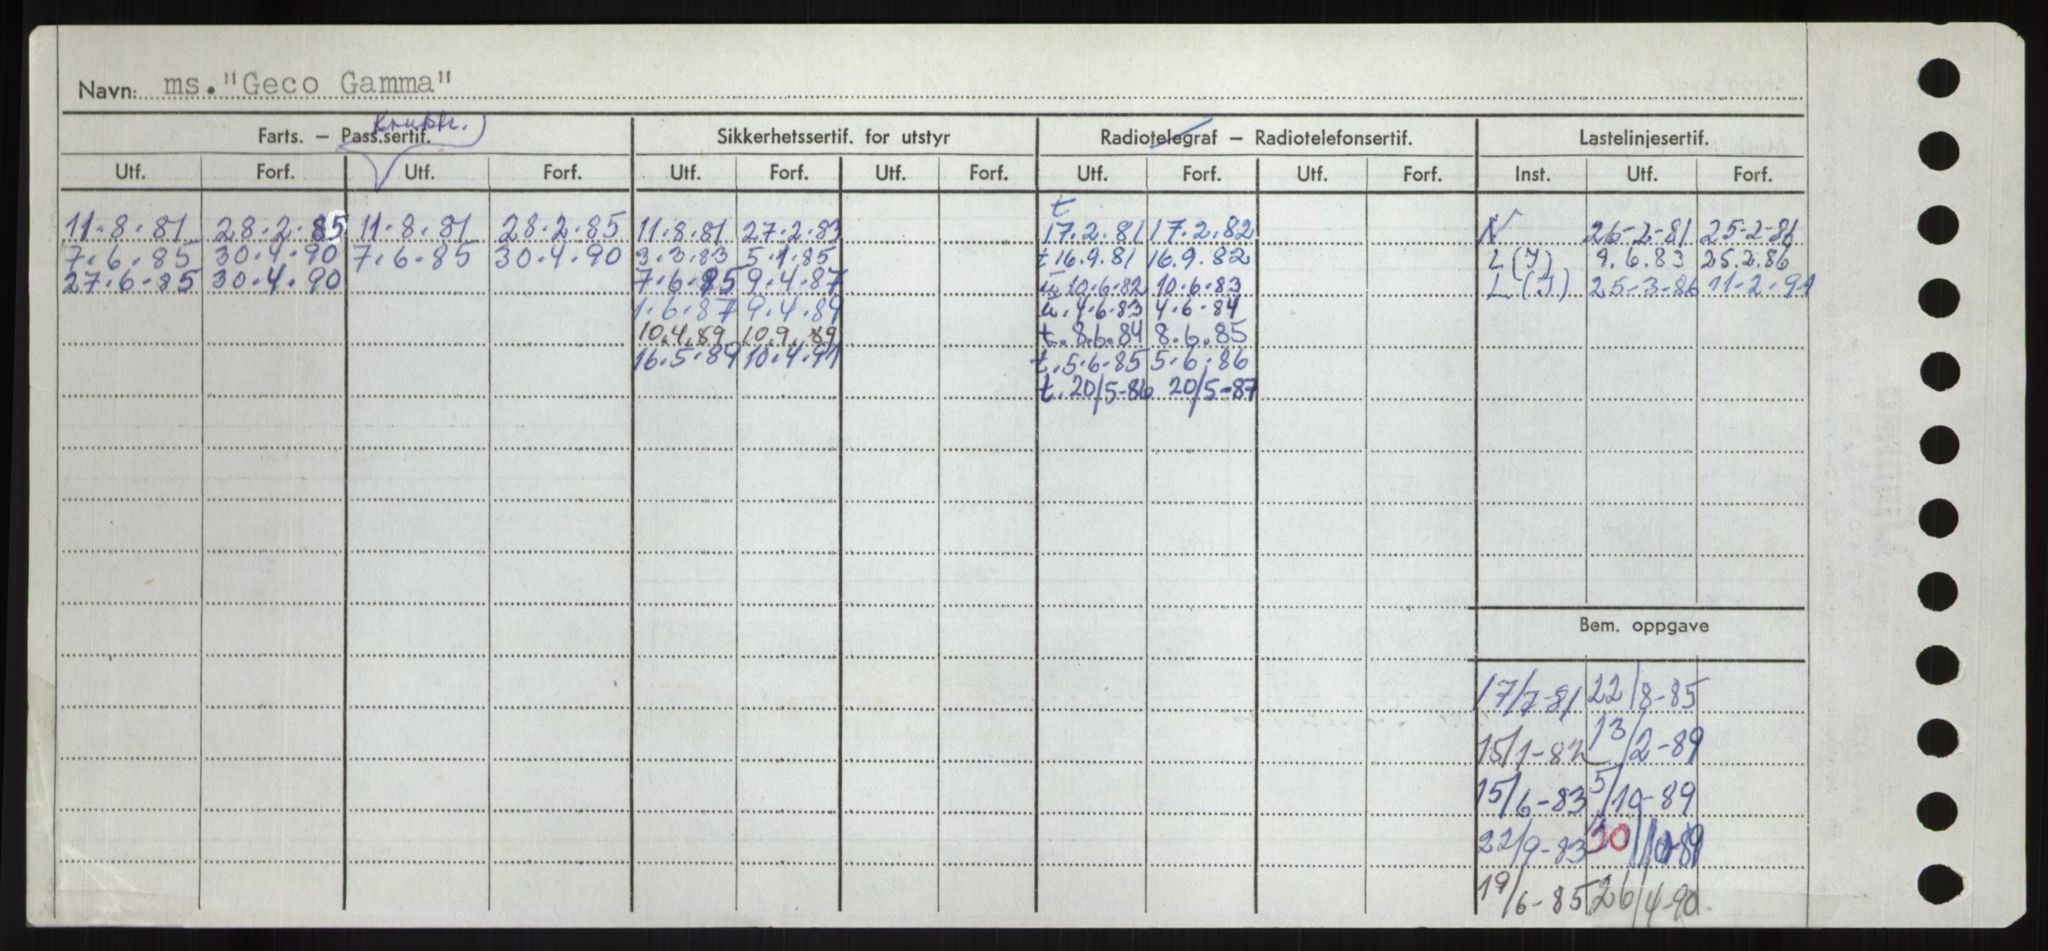 Navn: ms."Geco Gamma"
Farts. – Pass.sertif. Sikkerhetssertif. for utstyr Radiotelegraf – Radiotelefonsertif. Lastelinjesertif.
Utf. Forf. Utf. Forf. Utf. Forf. Utf. Forf. Utf. Forf. Utf. Forf. Inst. Utf. Forf.
t
11.8.81 28.2.85 11.8.81 28.2.85 11.8.81 27.2.83 17.2.81 17.2.82 N 26-2-81 25-2-86
7.6.85 30.4.90 7.6.85 30.4.90 3.3.83 5.1.85 t 16.9.81 16.9.82 L (I) 9.6.83 25.2.86
27.6.85 30.4.90 7.6.85 9.4.87 u. 10.6.82 10.6.83 L (I) 25-3-86 11-2-91
1.6.87 9.4.89 u. 4.6.83 4.6.84
10.4.89 10.9.89 t. 8.6.84 8.6.85
16.5.89 10.4.91 t. 5.6.85 5.6.86
t. 20/5-86 20/5-87
Bem. oppgave
17/7-81 22/8-85
15/1-82 13/2-89
15/6-83 5/10-89
22/9-83 30/10-89
19/6-85 26/4-90.